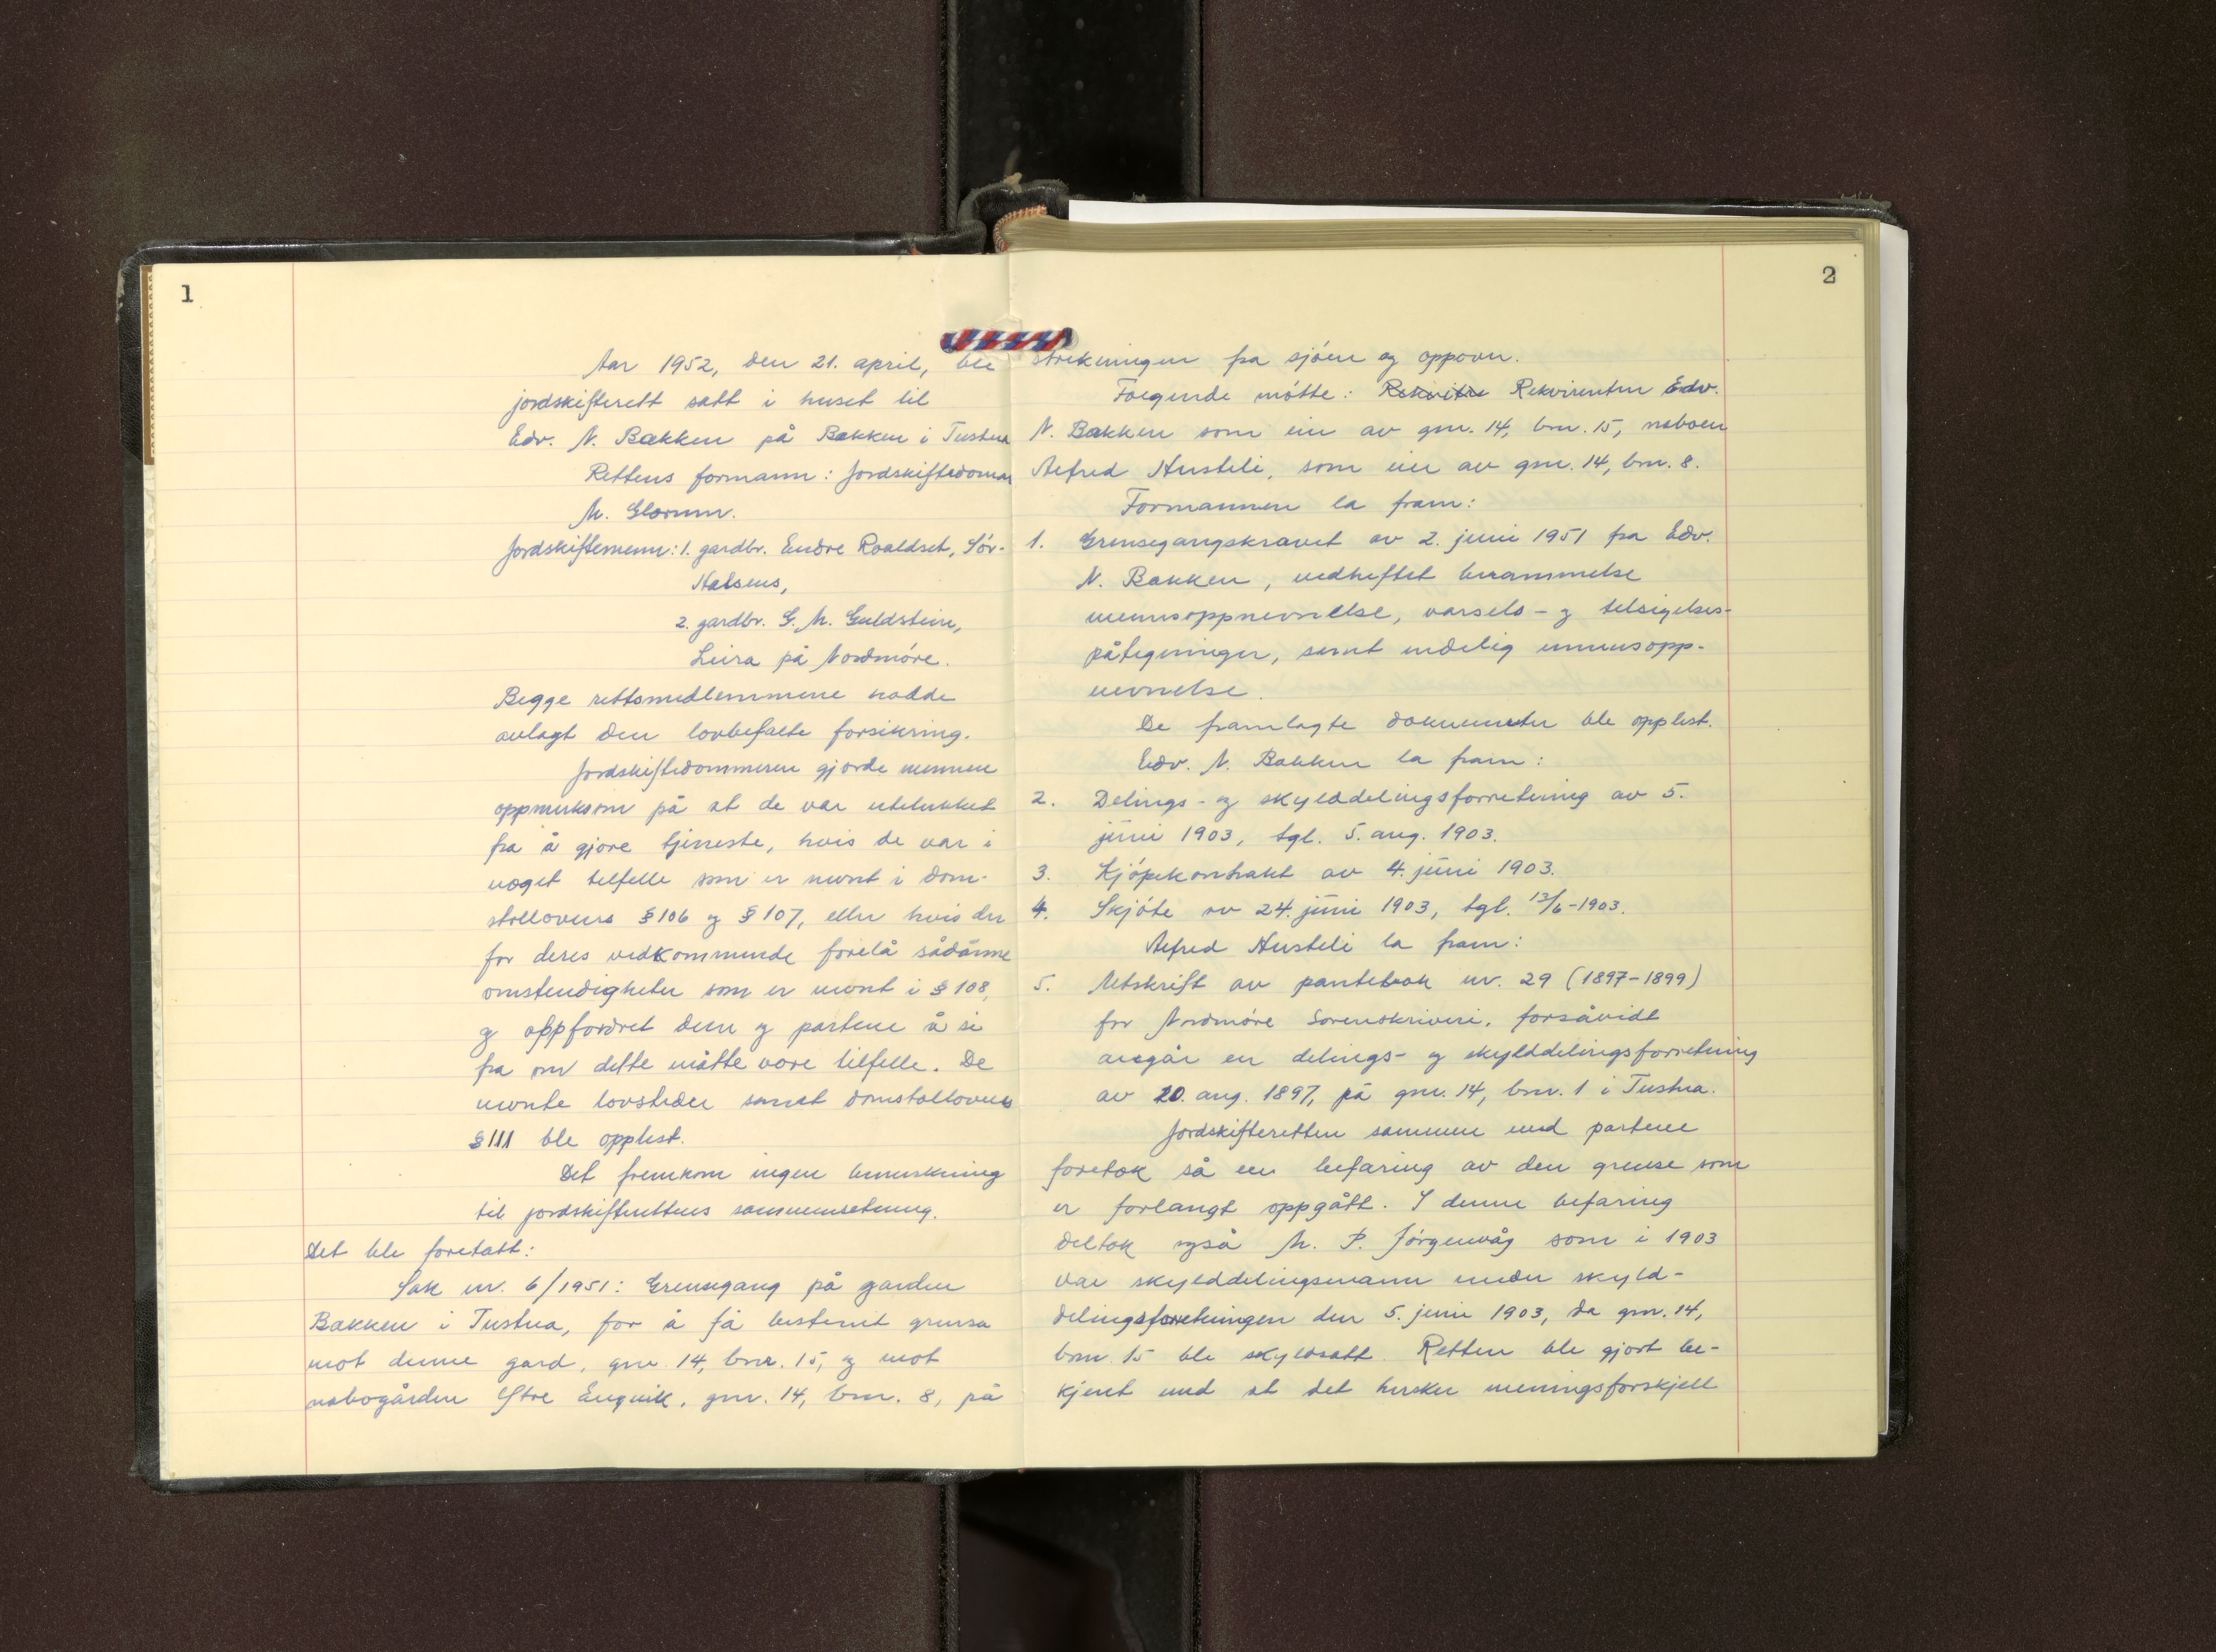 1
Aar 1952, den 21. april, ble
jordskifterett satt i huset til
Edv. N. Bakken på Bakken i Tustna
Rettens formann: Jordskiftedommar
M. Glærum.
Jordskiftemenn: 1. gardbr. Endre Roaldset, Sór-
Halsens,
2. gardbr. G. M. Guldstein,
Leira på Nordmóre.
Begge rettsmedlemmene hadde
avlagt den lovbefalte forsikring.
Jordskiftedommeren gjorde mennene
oppmerksom på at de var utelukket
fra å gjøre tjeneste, hvis de var i
noget tilfelle som er nevnt i dom-
stollovens § 106 og § 107, eller hvis der
for deres vedkommende forelå sådanne
omstendigheter som er nevnt i § 108,
og oppfordret dem og partene å si
fra om dette måtte være tilfelle. De
nevnte lovsteder samt domstollovens
§ 111 ble opplest.
Det fremkom ingen bemerkning
til jordskifterettens sammensetning.
Det ble foretatt:
Sak nr. 6/1951: Grensegang på garden
Bakken i Tustna, for å få bestemt grensa
mot denne gard, gnr. 14, bnr. 15, og mot
nabogården Ytre Engvik, gnr. 14, bnr. 8, på
2
strekningen fra sjóen og oppover.
Følgende mótte: Rekvitre Rekvirenten Edv.
N. Bakken som eier av gnr. 14, bnr. 15, naboen
Alfred Husteli, som eier av gnr. 14, bnr. 8.
Formannen la fram:
1. Grensegangskravet av 2. juni 1951 fra Edv.
N. Bakken, vedheftet berammelse
mennsoppnevnelse, varsels- og tilsigelses-
påtegninger, samt endelig mennsopp-
nevnelse.
De framlagte dokumenter ble opplest.
Edv. N. Bakken la fram:
2. Delings- og skylddelingsforretning av 5.
juni 1903, tgl. 5. aug. 1903.
3. Kjópekontrakt av 4. juni 1903.
4. Skjóte av 24. juni 1903, tgl. 13/6-1903.
Alfred Husteli la fram:
5. Utskrift av pantebok nr. 29 (1897-1899)
for Nordmóre Sorenskriveri, forsåvidt
angår en delings- og skylddelingsforretning
av 20. aug. 1897, på gnr. 14, bnr. 1 i Tustna.
Jordskifteretten sammen med partene
foretok så en befaring av den grense som
er forlangt oppgått. I denne befaring
deltok også M. P. Jórgenvåg som i 1903
var skylddelingsmann under skyld-
delingsforretningen den 5. juni 1903, da gnr. 14,
bnr. 15 ble skyldsatt. Retten ble gjort be-
kjent med at det hersker meningsforskjell